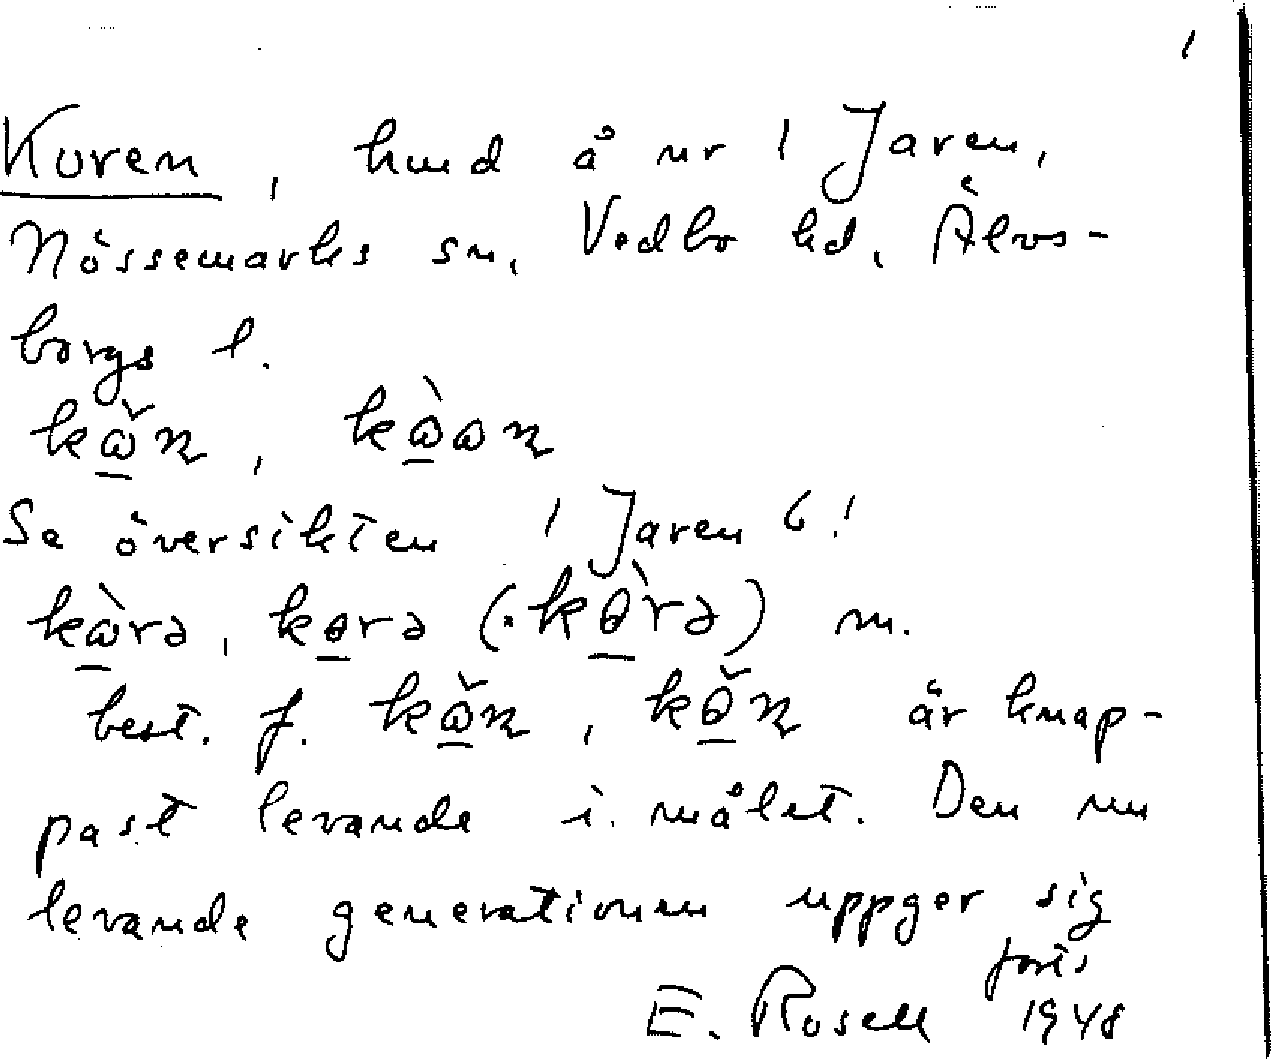 1
Kuren, hmd å nr 1 Jaren,
Nössemarks sn, Vedbo hd, Älvs-
borgs l.
kω̲̌n, kὼ̲ωn
Se översikten 1 Jaren 6!
kὼ̲rə, kɵ̲rə (·kɵ̲̀rə) m.
best. f. kω̲̌n, kɵ̲̌n är knap-
past levande i målet. Den nu
levande generationen uppger sig
forts
E. Rosell 1948